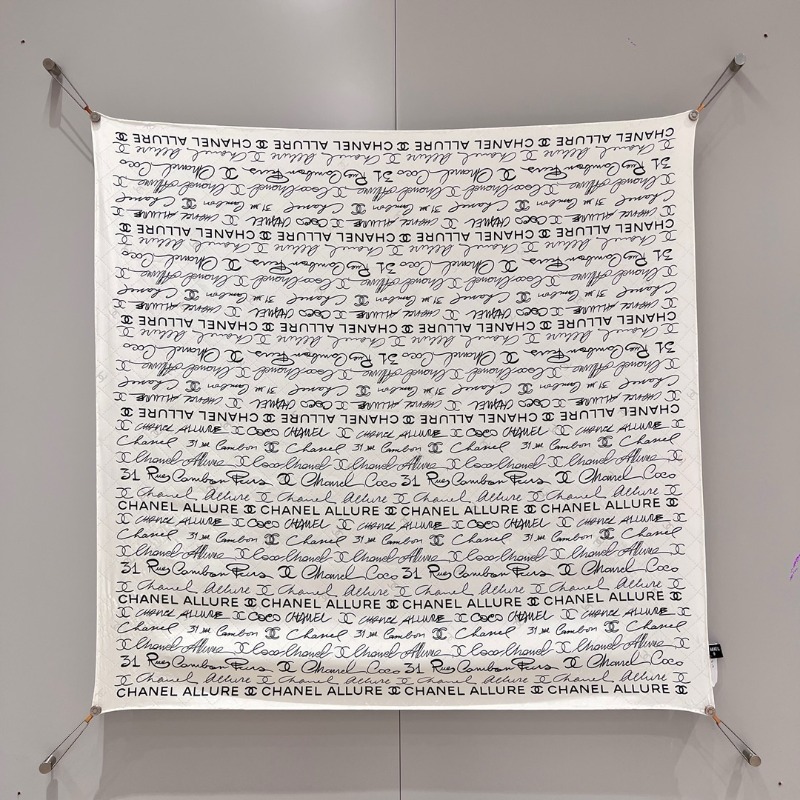 CHANEL ALLURE CHANEL ALLURE CHANEL ALLURE CHANEL ALLURE
Chanel Allure Chanel Allure Chanel Allure Chanel Allure
31 Rue Cambon Paris Chanel Coco 31 Rue Cambon Paris Chanel Coco
Chanel Allure Coco Chanel Allure Coco Chanel Allure
Chanel 31 Cambon Chanel 31 Cambon Chanel 31 Cambon Chanel
CHANCE ALLURE COCO CHANEL CHANCE ALLURE COCO CHANEL CHANCE ALLURE
CHANEL ALLURE CHANEL ALLURE CHANEL ALLURE CHANEL ALLURE
Chanel Allure Chanel Allure Chanel Allure Chanel Allure
31 Rue Cambon Paris Chanel Coco 31 Rue Cambon Paris Chanel Coco
Chanel Allure Coco Chanel Allure Coco Chanel Allure
Chanel 31 Cambon Chanel 31 Cambon Chanel 31 Cambon Chanel
CHANCE ALLURE COCO CHANEL CHANCE ALLURE COCO CHANEL CHANCE ALLURE
CHANEL ALLURE CHANEL ALLURE CHANEL ALLURE CHANEL ALLURE
Chanel Allure Chanel Allure Chanel Allure Chanel Allure
31 Rue Cambon Paris Chanel Coco 31 Rue Cambon Paris Chanel Coco
Chanel Allure Coco Chanel Allure Coco Chanel Allure
Chanel 31 Cambon Chanel 31 Cambon Chanel 31 Cambon Chanel
CHANCE ALLURE COCO CHANEL CHANCE ALLURE COCO CHANEL CHANCE ALLURE
CHANEL ALLURE CHANEL ALLURE CHANEL ALLURE CHANEL ALLURE
CHANCE ALLURE COCO CHANEL CHANCE ALLURE COCO CHANEL CHANCE ALLURE
Chanel 31 Cambon Chanel 31 Cambon Chanel 31 Cambon Chanel
Chanel Allure Coco Chanel Allure Coco Chanel Allure
31 Rue Cambon Paris Chanel Coco 31 Rue Cambon Paris Chanel Coco
Chanel Allure Chanel Allure Chanel Allure Chanel Allure
CHANEL ALLURE CHANEL ALLURE CHANEL ALLURE CHANEL ALLURE
CHANCE ALLURE COCO CHANEL CHANCE ALLURE COCO CHANEL CHANCE ALLURE
Chanel 31 Cambon Chanel 31 Cambon Chanel 31 Cambon Chanel
Chanel Allure Coco Chanel Allure Coco Chanel Allure
31 Rue Cambon Paris Chanel Coco 31 Rue Cambon Paris Chanel Coco
Chanel Allure Chanel Allure Chanel Allure Chanel Allure
CHANEL ALLURE CHANEL ALLURE CHANEL ALLURE CHANEL ALLURE
CHANCE ALLURE COCO CHANEL CHANCE ALLURE COCO CHANEL CHANCE ALLURE
Chanel 31 Cambon Chanel 31 Cambon Chanel 31 Cambon Chanel
Chanel Allure Coco Chanel Allure Coco Chanel Allure
31 Rue Cambon Paris Chanel Coco 31 Rue Cambon Paris Chanel Coco
Chanel Allure Chanel Allure Chanel Allure Chanel Allure
CHANEL ALLURE CHANEL ALLURE CHANEL ALLURE CHANEL ALLURE